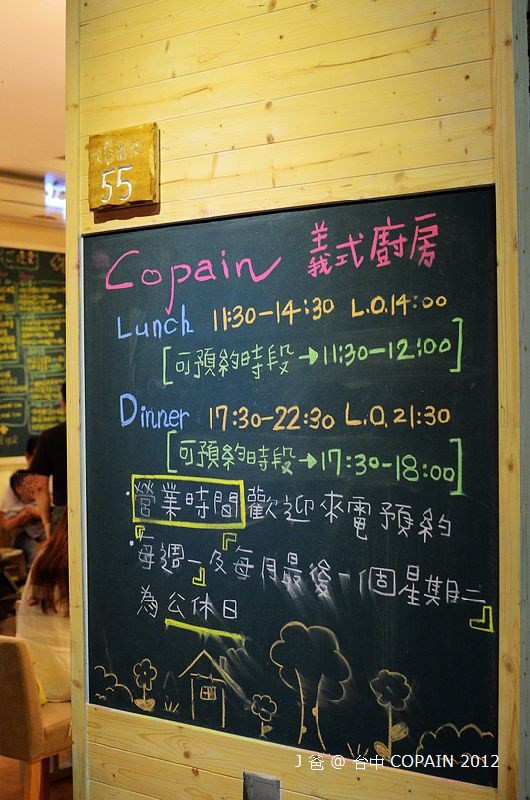 55
Copain 義式廚房
Lunch 11:30-14:30 L.O.14:00
[可預約時段→11:30-12:00]
Dinner 17:30-22:30 L.O.21:30
[可預約時段→17:30-18:00]
·營業時間歡迎來電預約
·『每週一』及『每月最後一個星期二』
為公休日
J 爸 @ 台中 COPAIN 2012